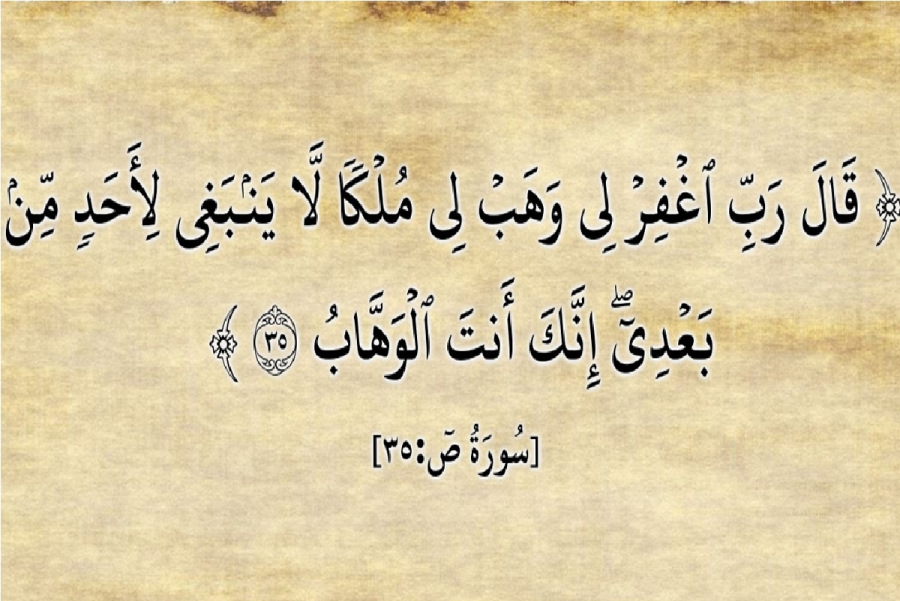 ﴿ قَالَ رَبِّ ٱغْفِرْ لِى وَهَبْ لِى مُلْكًا لَّا يَنۢبَغِى لِأَحَدٍ مِّنۢ
بَعْدِىٓ ۖ إِنَّكَ أَنتَ ٱلْوَهَّابُ ٣٥ ﴾
[سُورَةُ صٓ:٣٥]